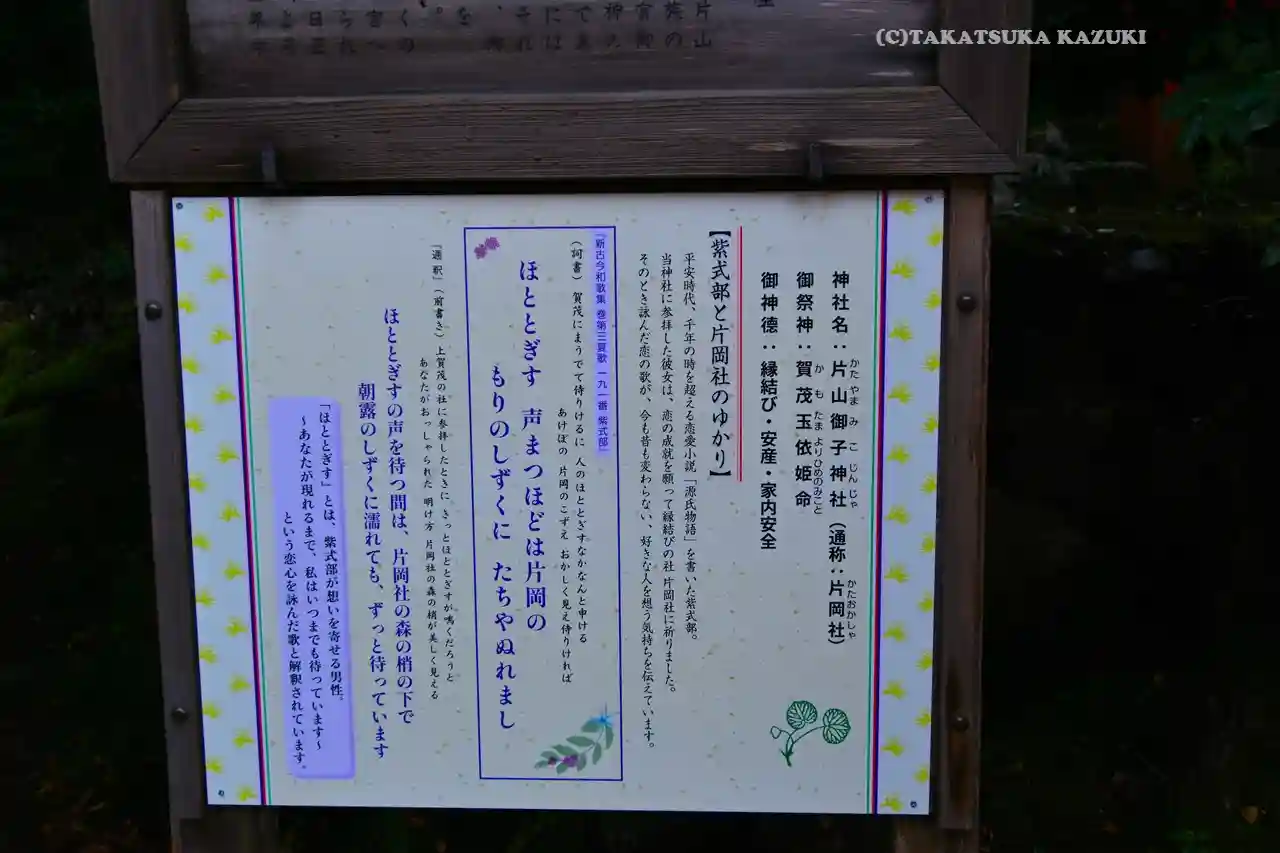 (C)TAKATSUKA KAZUKI
神社名：片山御子神社（通称：片岡社）
かたやまみこじんじゃ
かたおかしゃ
御祭神：賀茂玉依姫命
かもたまよりひめのみこと
御神徳：縁結び・安産・家内安全
【紫式部と片岡社のゆかり】
平安時代、千年の時を超える恋愛小説「源氏物語」を書いた紫式部。
当神社に参拝した彼女は、恋の成就を願って縁結びの社 片岡社に祈りました。
そのとき詠んだ恋の歌が、今も昔も変わらない、好きな人を想う気持ちを伝えています。
『新古今和歌集 巻第三夏歌 一九一番 紫式部』
（詞書）賀茂にまうでて侍りけるに 人のほととぎすなかなんと申ける
あけぼの 片岡のこずえ おかしく見え侍りければ
ほととぎす 声まつほどは片岡の
もりのしずくに たちやぬれまし
『通釈』（前書き）上賀茂の社に参拝したときに きっとほととぎすが鳴くだろうと
あなたがおっしゃられた 明け方 片岡社の森の梢が美しく見える
ほととぎすの声を待つ間は、片岡社の森の梢の下で
朝露のしずくに濡れても、ずっと待っています
「ほととぎす」とは、紫式部が想いを寄せる男性。
～あなたが現れるまで、私はいつまでも待っています～
という恋心を詠んだ歌と解釈されています。